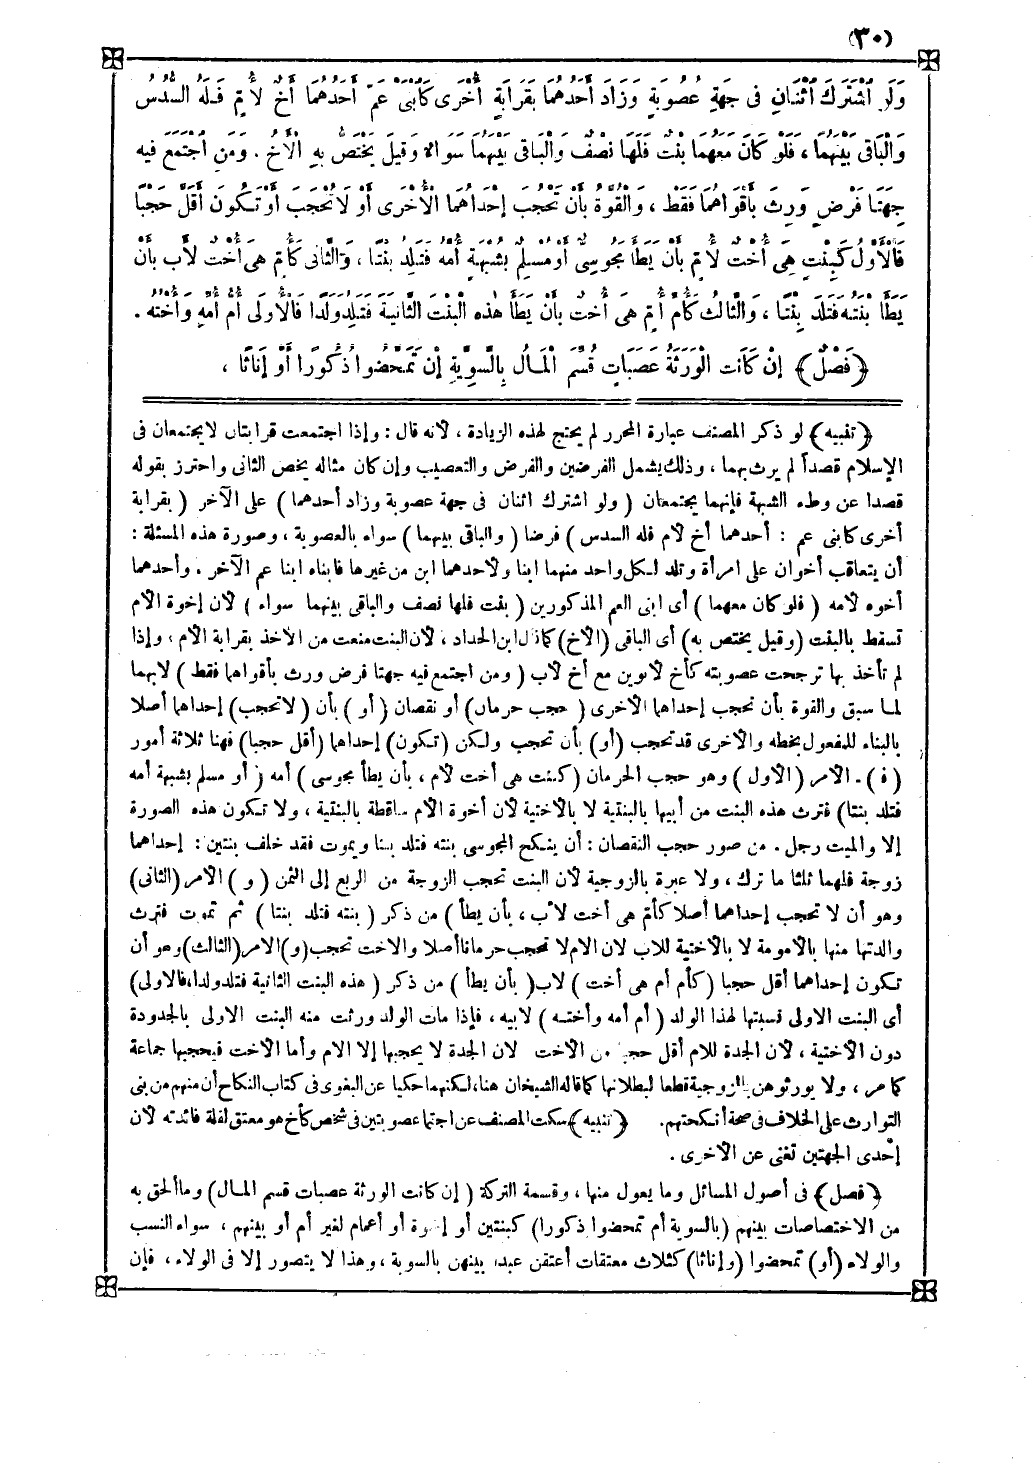 (٣٠)
وَلَوِ اشْتَرَكَ اثْنَانِ فى جِهَةِ عُصُوبَةٍ وَزَادَ أَحَدُهُمَا بِقَرَابَةٍ أُخْرَى كَابْنَىْ عَمّ أَحَدُهُمَا أَخٌ لأُمّ فَلَهُ السُّدُسُ
وَالْبَاقى بَيْنَهُمَا ، فَلَوْ كَانَ مَعَهُمَا بِنْتٌ فَلَهَا نِصْفٌ وَالْبَاقى بَيْنَهُمَا سَوَاءٌ وَقِيلَ يَخْتَصُّ بِهِ الْأَخُ . وَمَنِ اجْتَمَعَ فيهِ
جِهَتَا فَرْضٍ وَرِثَ بِأَقْوَاهُمَا فَقَطْ ، وَالْقُوَّةُ بِأَنْ تَحْجُبَ إِحْدَاهُمَا الْأُخْرَى أَوْ لَا تُحْجَبَ أَوْ تَكُونَ أَقَلَّ حَجْبًا
فَالْأَوَّلُ كَبِنْتٍ هِىَ أُخْتٌ لأُمّ بِأَنْ يَطَأَ مَجُوسِىٌّ أَوْ مُسْلِمٌ بِشُبْهَةٍ أُمَّهُ فَتَلِدَ بِنْتًا ، وَالثَّانى كَأُمّ هِىَ أُخْتٌ لأَب بِأَنْ
يَطَأَ بِنْتَهُ فَتَلِدَ بِنْتًا ، وَالثَّالِثُ كَأُمِّ أُمّ هِىَ أُخْتٌ بِأَنْ يَطَأَ هٰذِهِ الْبِنْتَ الثَّانِيَةَ فَتَلِدَ وَلَدًا فَالْأُولَى أُمُّ أُمِّهِ وَأُخْتُهُ .
﴿فَصْلٌ﴾ إِنْ كَانَتِ الْوَرَثَةُ عَصَبَاتٍ قُسِّمَ الْمَالُ بِالسَّوِيَّةِ إِنْ تَمَحَّضُوا ذُكُورًا أَوْ إِنَاثًا ،
﴿تنبيه﴾ لو ذكر المصنف عبارة المحرر لم يحتج لهذه الزيادة ، لأنه قال : وإذا اجتمعت قرابتان لايجتمعان فى
الإسلام قصداً لم يرث بهما ، وذلك يشمل الفرضين والفرض والتعصيب وإن كان مثاله يخص الثانى واحترز بقوله
قصدا عن وطء الشبهة فإنهما يجتمعان ( ولو اشترك اثنان فى جهة عصوبة وزاد أحدهما ) على الآخر ( بقرابة
أخرى كابنى عم : أحدهما أخ لأم فله السدس ) فرضا ( والباقى بينهما ) سواء بالعصوبة ، وصورة هذه المسئلة :
أن يتعاقب أخوان على امرأة وتلد لكل واحد منهما ابنا ولأحدهما ابن من غيرها فابناه ابنا عم الآخر . وأحدهما
أخوه لأمه ( فلو كان معهما ) أى ابنى العم المذكورين ( بنت فلها نصف والباقى بينهما سواء ) لأن إخوة الأم
تسقط بالبنت (وقيل يختص به) أى الباقى (الأخ) كما قال ابن الحداد ، لأن البنت منعت من الأخذ بقرابة الأم ، وإذا
لم تأخذ بها ترجحت عصوبته كأخ لأبوين مع أخ لأب ( ومن اجتمع فيه جهتا فرض ورث بأقواهما فقط ) لابهما
لما سبق والقوة بأن تحجب إحداهما الأخرى ( حجب حرمان) أو نقصان ( أو ) بأن ( لاتحجب) إحداهما أصلا
بالبناء للمفعول بخطه والأخرى قد تحجب (أو) بأن تحجب ولكن (تكون) إحداهما (أقل حجبا) فهنا ثلاثة أمور
( ف ) . الأمر ( الأول ) وهو حجب الحرمان (كبنت هى أخت لأم ، بأن يطأ مجوسى ) أمه ( أو مسلم بشبهة أمه
فتلد بنتا) فترث هذه البنت من أبيها بالبنتية لا بالأختية لأن أخوة الأم ساقطة بالبنتية ، ولا تكون هذه الصورة
إلا والميت رجل . من صور حجب النقصان : أن ينكح المجوسى بنته فتلد بنتا ويموت فقد خلف بنتين : إحداهما
زوجة فلهما ثلثا ما ترك ، ولا عبرة بالزوجية لأن البنت تحجب الزوجة من الربع إلى الثمن ( و ) الأمر (الثانى)
وهو أن لا تحجب إحداهما أصلا كأم هى أخت لأب ، بأن يطأ ) من ذكر ( بنته فتلد بنتا ) ثم تموت فترث
والدتها منها بالأمومة لا بالأختية للأب لأن الأم لا تحجب حرمانا أصلا والأخت تحجب (و) الأمر (الثالث) وهو أن
تكون إحداهما أقل حجبا (كأم أم هى أخت ) لأب ( بأن يطأ ) من ذكر ( هذه البنت الثانية فتلد ولدا، فالأولى)
أى البنت الأولى نسبتها لهذا الولد ( أم أمه وأخته ) لأبيه ، فإذا مات الولد ورثت منه البنت الأولى بالجدودة
دون الأختية ، لأن الجدة للأم أقل حجبا من الأخت لأن الجدة لا يحجبها إلا الأم وأما الأخت فيحجبها جماعة
كما مر ، ولا يورثوهن بالزوجية قطعا لبطلانها كما قاله الشيخان هنا، لكنهما حكيا عن البغوى فى كتاب النكاح أن منهم من بنى
التوارث على الخلاف فى صحة أنكحتهم. ﴿تنبيه﴾ سكت المصنف عن اجتماع عصوبتين فى شخص كأخ هو معتق لقلة فائدته لأن
إحدى الجهتين تغنى عن الأخرى .
﴿فصل﴾ فى أصول المسائل وما يعول منها ، وقسمة التركة ( إن كانت الورثة عصبات قسم المال) وما ألحق به
من الاختصاصات بينهم (بالسوية أم تمحضوا ذكورا) كبنتين أو إخوة أو أعمام لغير أم أو بينهم ، سواء النسب
والولاء (أو) تمحضوا (وإناثا) كثلاث معتقات أعتقن عبدا بينهن بالسوية ، وهذا لا يتصور إلا فى الولاء ، فإن